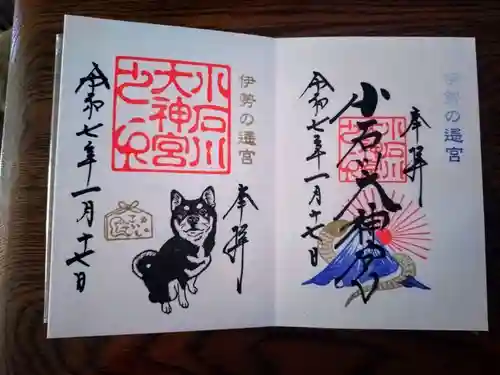 伊勢の遥宮
奉拝
小石川
大神宮
令和七年一月十七日
伊勢の遥宮
奉拝
小石川大神宮
令和七年一月十七日